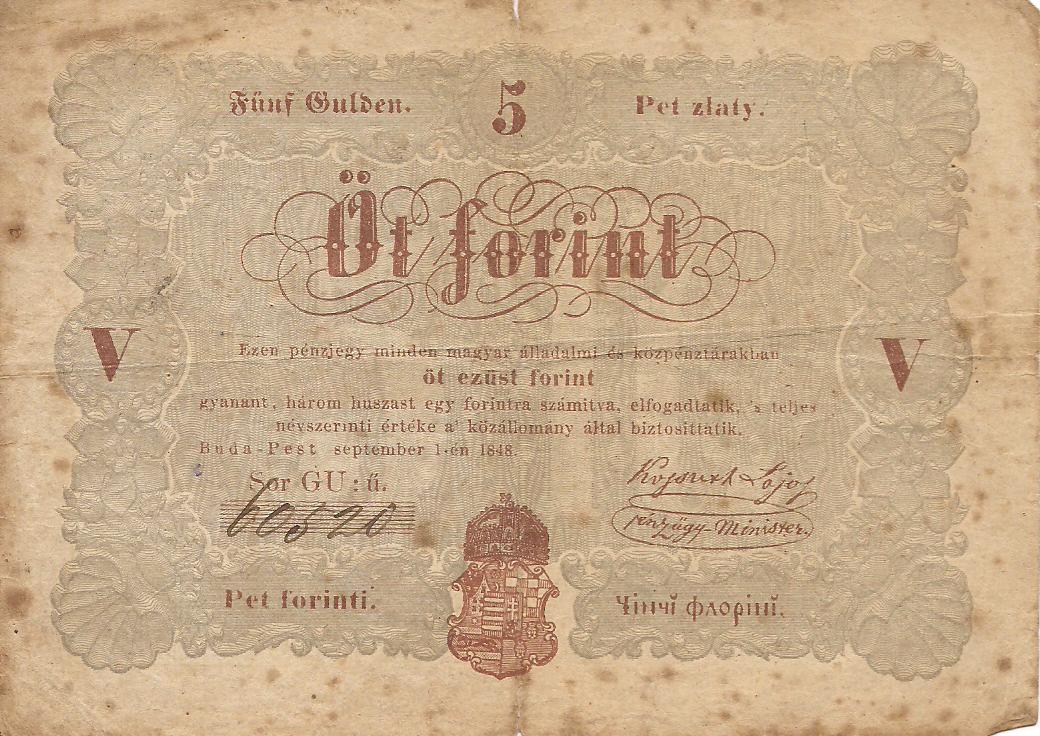 Fünf Gulden.
5
Pet zlaty.
Öt forint
V
V
Ezen pénzjegy minden magyar álladalmi és közpénztárakban
öt ezüst forint
gyanant, három huszast egy forintra számitva, elfogadtatik, 's teljes
névszerinti értéke a' közállomány által biztosittatik.
Buda-Pest september 1-én 1848.
Sor GU: ű.
60520
Kossuth Lajos
pénzügy-Minister.
Pet forinti.
Чінчĭ флорінĭ.